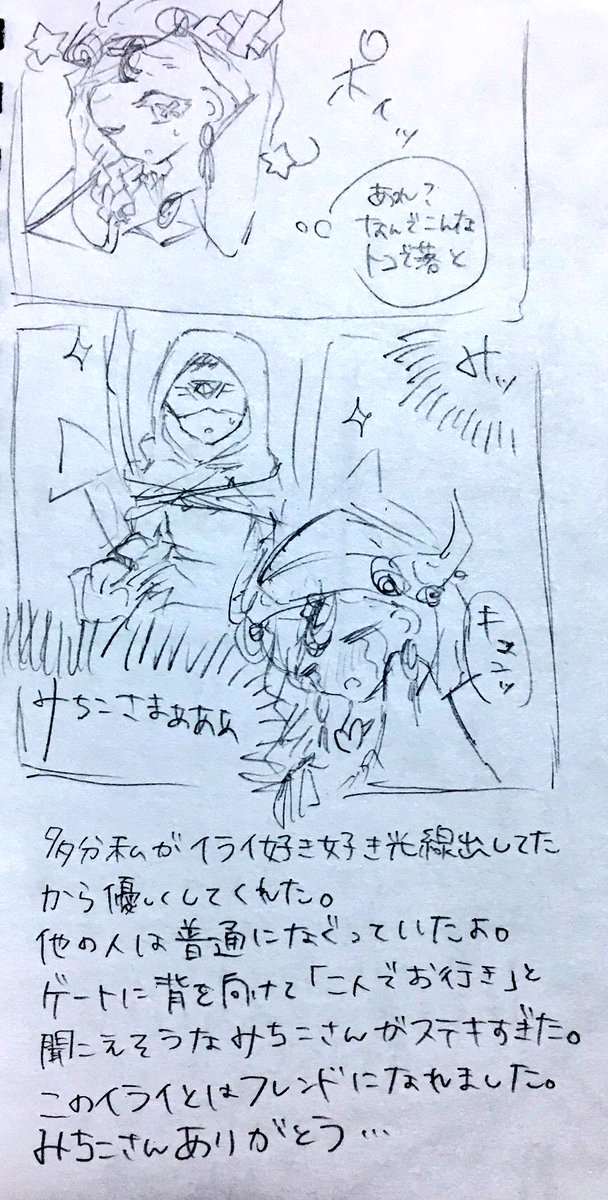 ポイッ
あれ?
なんでこんな
トコで落と
キュンッ
みちこさまぁぁぁ
多分私がイライ好き好き光線出してた
から優しくしてくれた。
他の人は普通になぐっていたよ。
ゲートに背を向けて「二人でお行き」と
聞こえそうなみちこさんがステキすぎた。
このイライとはフレンドになれました。
みちこさんありがとう…